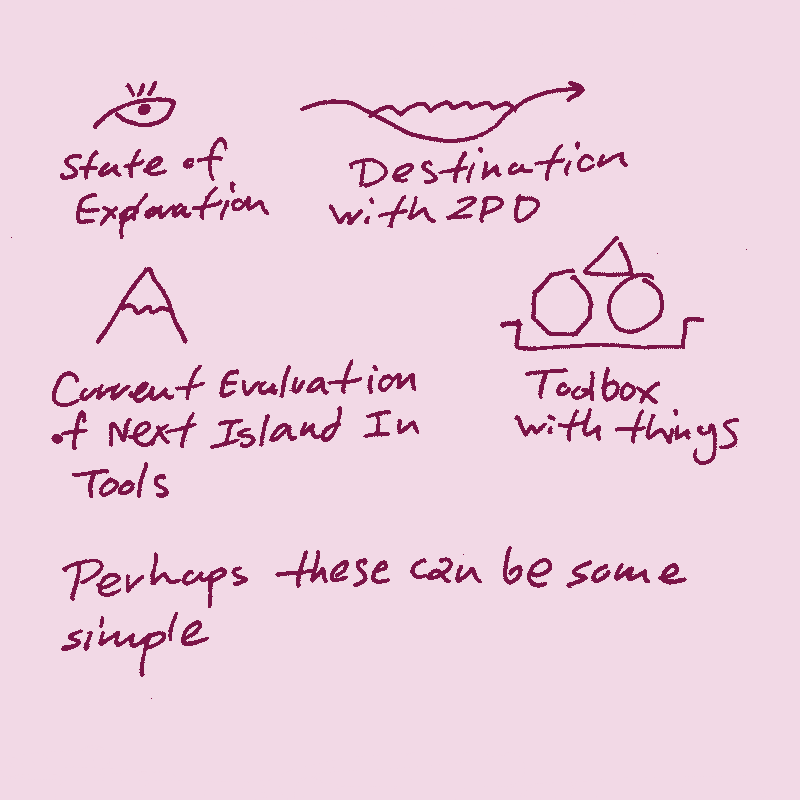 State of
Exploration
Destination
with ZPD
Current Evaluation
of Next Island In
Tools
Toolbox
with things
Perhaps these can be some
simple